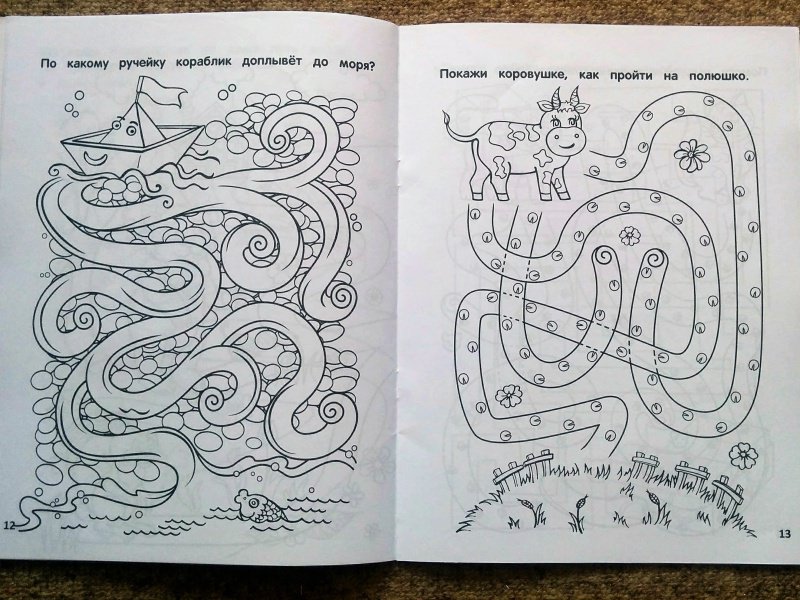 По какому ручейку кораблик доплывёт до моря?
12
Покажи коровушке, как пройти на полюшко.
13